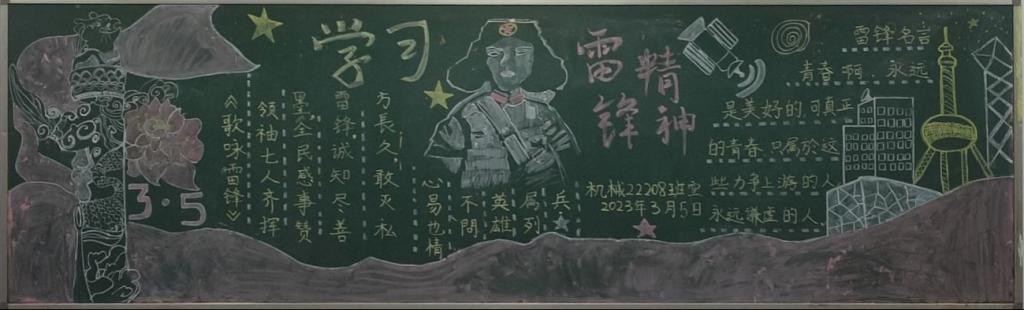 学习
雷锋
精神
3·5
《歌咏雷锋》
领袖七人齐挥
墨全民感事赞
雷锋诚知尽善
方長久，敢灭私
心易也情
不問
英雄
属列
兵
机械
2023年3月5日
雷锋名言
青春啊 永远
是美好的 可真正
的青春 只属於这
些力争上游的人
永远謙虚的人